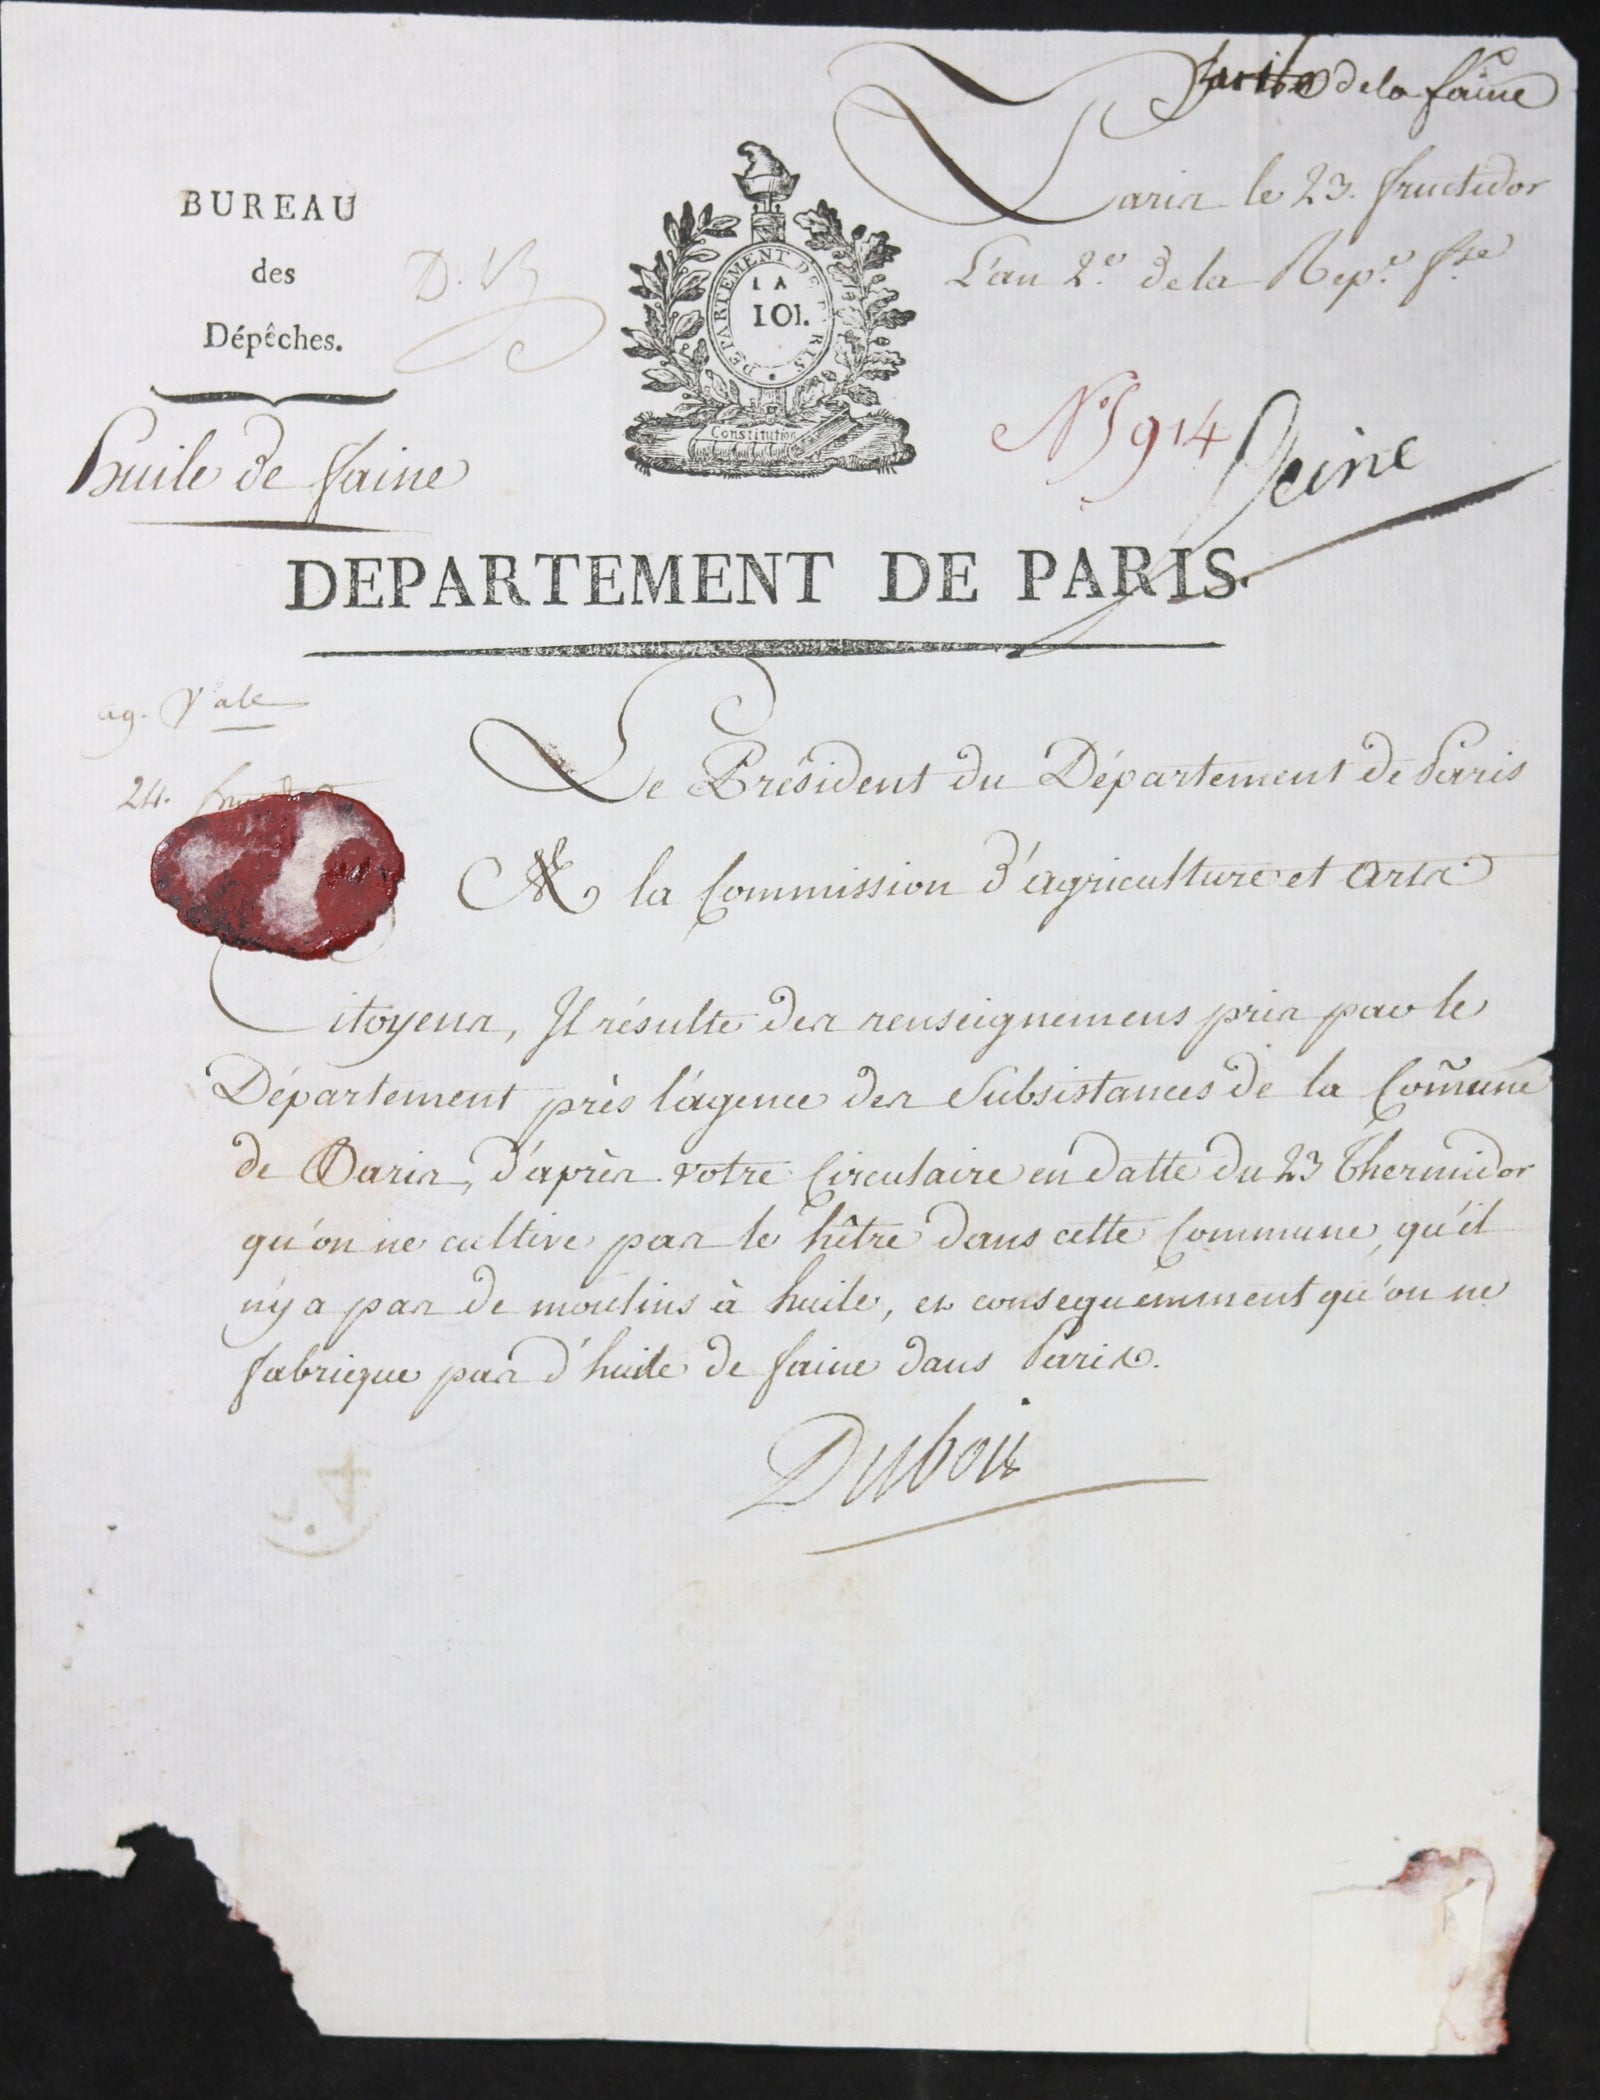 de la faine
Paris le 23. fructidor
L'an 2.e de la Rep.e fse
BUREAU
des
Dépêches.
DEPARTEMENT DE PARIS
LA
LOI.
Constitution
Huile de faine
N° 5914
Seine
DEPARTEMENT DE PARIS.
ag. Vale
24.
Le Président du Département de Paris
A la Commission d'agriculture et Arts
Citoyens, Il résulte des renseignemens pris par le
Département près l'agence des Subsistances de la Com̃une
de Paris, d'après votre Circulaire en datte du 23 Thermidor
qu'on ne cultive pas le hêtre dans cette Commune, qu'il
n'y a pas de moulins à huile, et consequemment qu'on ne
fabrique pas d'huile de faine dans Paris.
Dubois